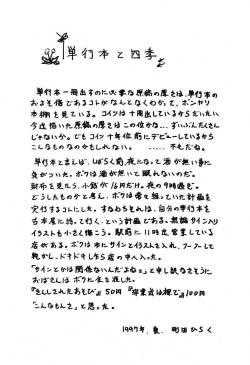 単行本と四季
単行本一冊出すのに必要な原稿の厚さは、単行本の
およそ倍であるコトがなんとなくわかって、ボンヤリ
本棚を見ている。コイツは十冊出しているからだいたい
今迄描いた原稿の厚さはこの位かな…ずいぶんたくさん
じゃないか。でもコイツ十年位前にデビューしているから
こんなものなのかもしれない。……不毛だね。
単行本と言えば、しばらく前、夜になって酒が無い事に
気がついた。ボクは酒が無いと眠れないのだ。
財布を見たら、小銭が16円だけ。夜の9時過ぎ。
どうしたものかと考え、ボクは常々狙っていた計画を
実行するコトにした。すなわちそれは、自分の単行本を
古本屋に持って行く、という計画である。無論サイン入り
イラストも小さく描こう。駅前に11時迄営業している
店がある。ボクは本にサインとイラストを入れ、フーフーして
乾かし、ドキドキしながら店の中へ入った。
「サインとかは関係ないんだよねェ」と申し訳なさそうに
おばさんはボクに金を渡した。
50円『卒業式は裸で』100円
「こんなもんさ」と思った。
1997年、夏. 町田ひらく